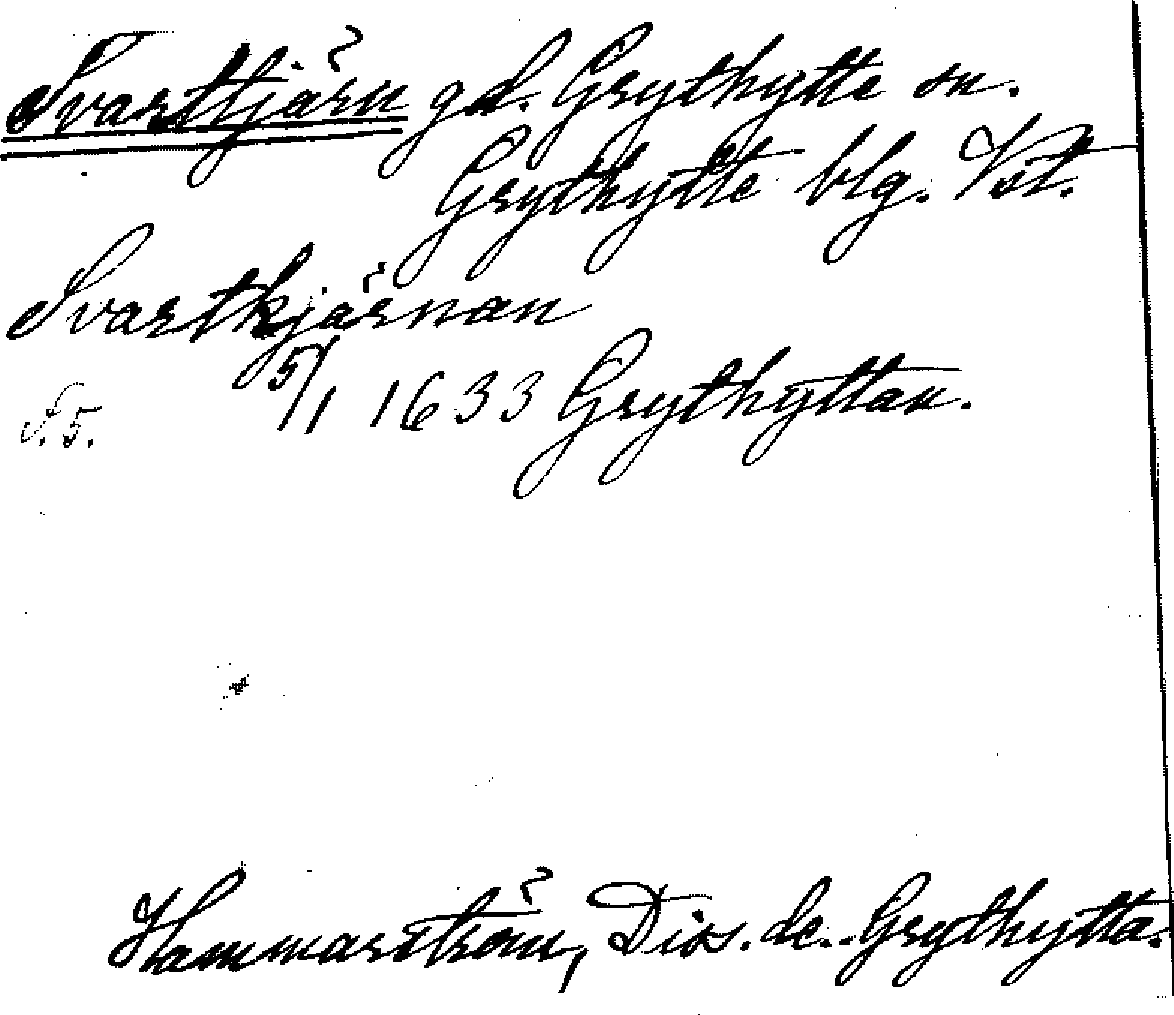 Svarttjärn gd. Grythytte sn.
Grythytte blg. Vst.
Svartkjärnan
5/1 1633 Grythyttan.
S. 5.
Hammarström, Diss. de. Grythytta.